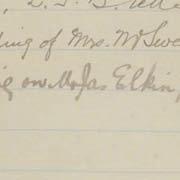 ing of Mrs. McSwe
g on Mr Jas Elkin,